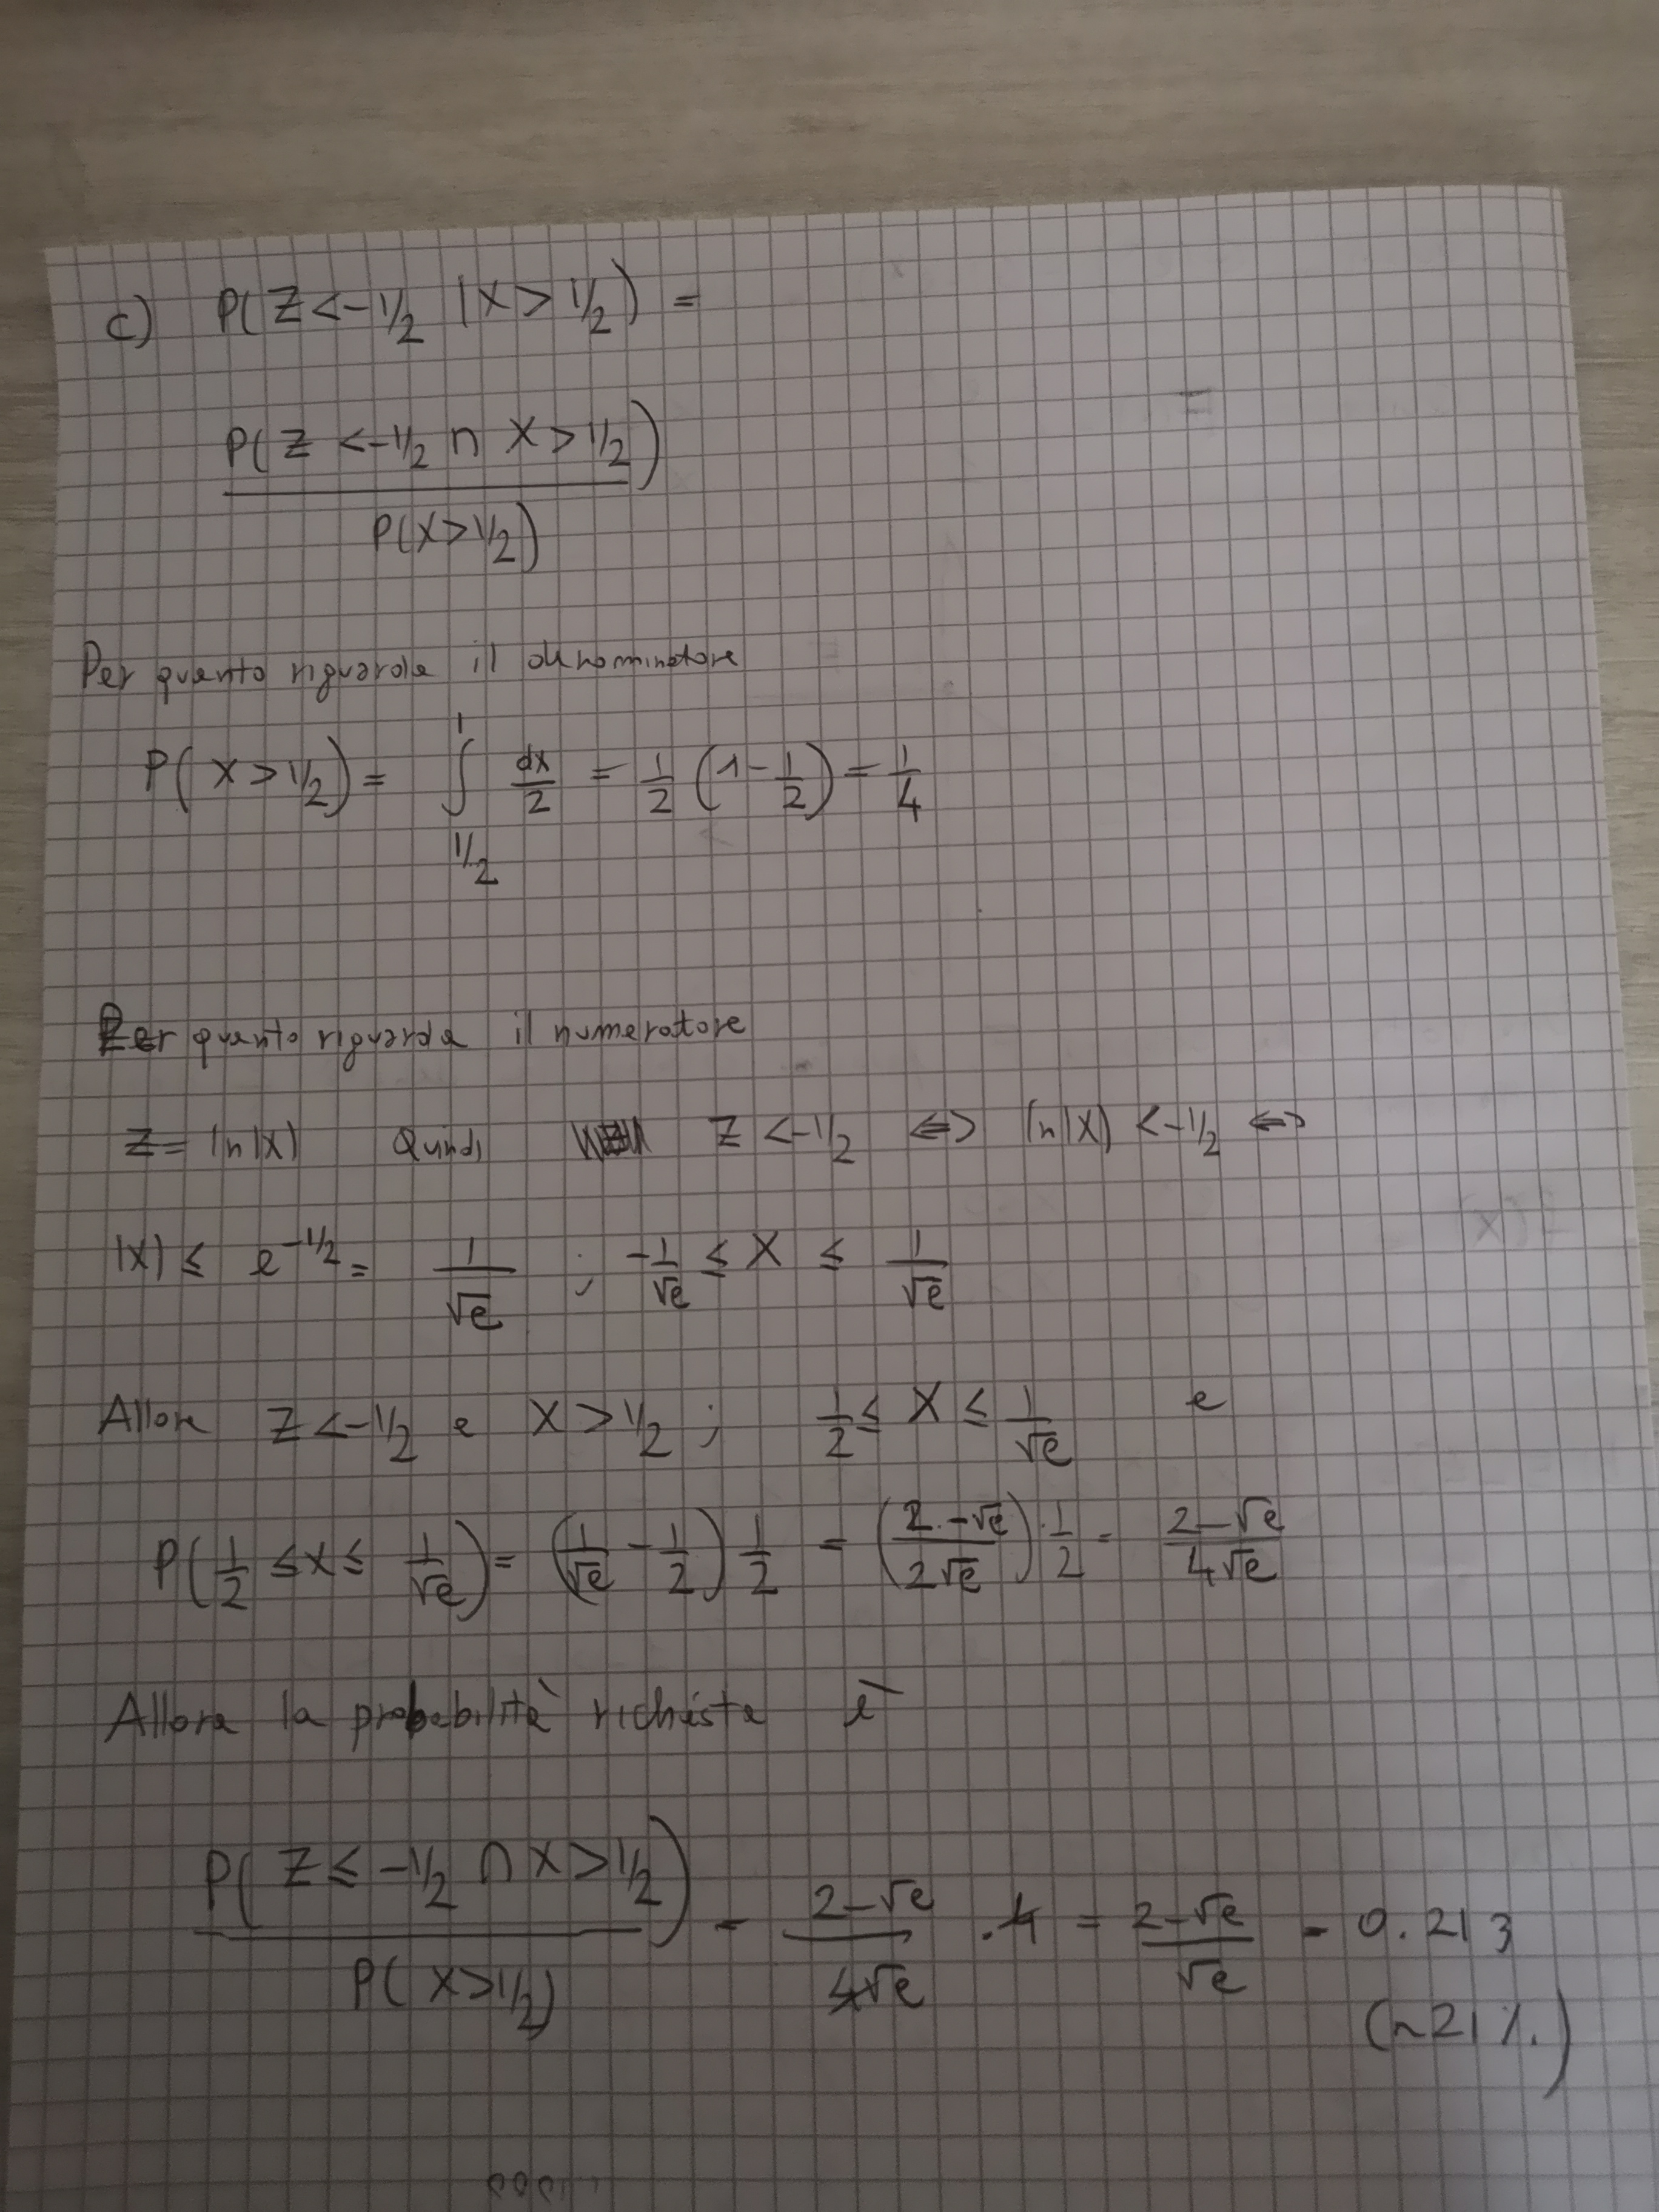 c) P(Z<-1/2 |X>1/2) =
P(Z<-1/2 ∩ X>1/2)
P(X>1/2)
Per quanto riguarda il denominatore
P(X>1/2) = ∫_{1/2}^{1} dx/2 = 1/2 (1-1/2) = 1/4
Per quanto riguarda il numeratore
Z = ln|X| Quindi Z<-1/2 ⇔ ln|X| <-1/2 ⇔
|X| ≤ e^{-1/2} = 1/√e ; -1/√e ≤ X ≤ 1/√e
Allora Z<-1/2 e X>1/2 ; 1/2 ≤ X ≤ 1/√e e
P(1/2 ≤ X ≤ 1/√e) = (1/√e - 1/2) 1/2 = (2-√e / 2√e) · 1/2 = 2-√e / 4√e
Allora la probabilità richiesta è
P(Z ≤ -1/2 ∩ X>1/2) / P(X>1/2) = 2-√e / 4√e · 4 = 2-√e / √e = 0.213
(~21%)